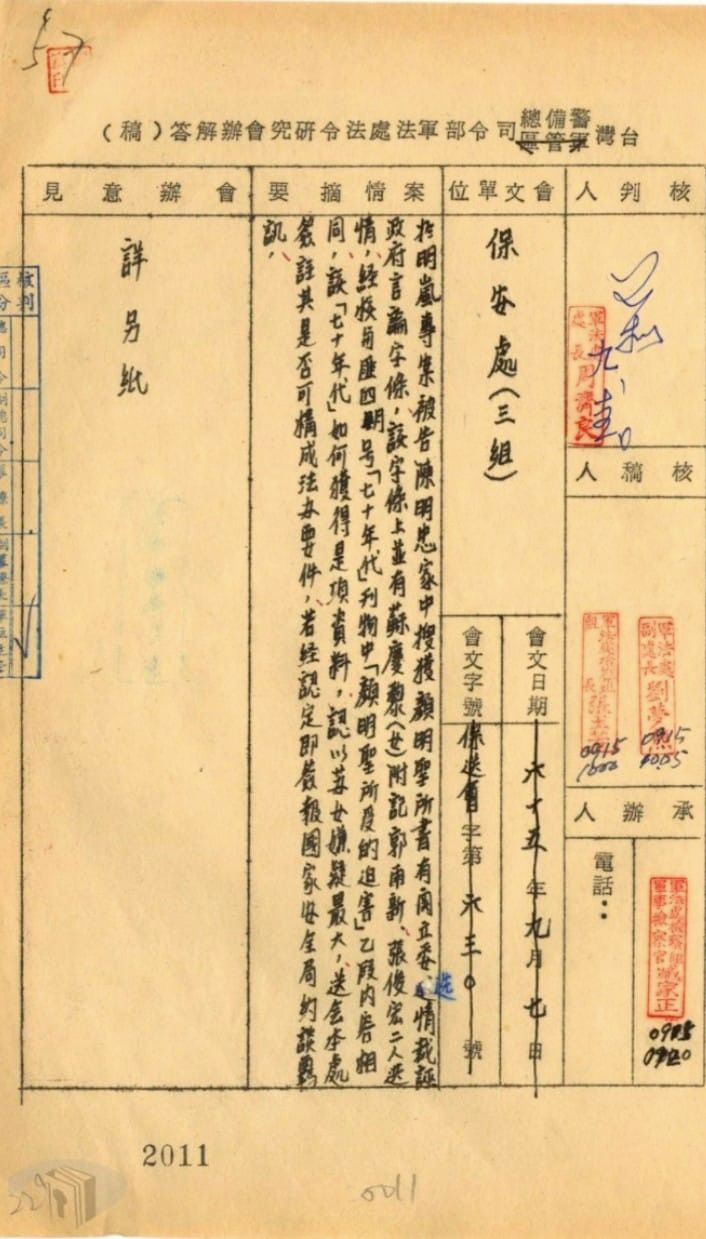 57
台灣警備總軍管區司令部軍法處法令研究會辦解答(稿)
核判人
軍法處處長周濟良
核稿人
軍法處副處長劉夢
0915
1005
0915
1000
承辦人
軍事檢察官
家正
0915
0920
電話:
會文單位
保安處(三組)
會文日期
六十五年九月七日
會文字號
保送會字第六三0號
案情摘要
於明嵐專案被告陳明忠家中搜獲顏明聖所書有関立委选情裁誣
政府言論字條,該字條上並有蘇慶黎(女)附記郭雨新、張俊宏二人选
情,經核与匪四期号「七十年代」刊物中「顏明聖所受的迫害」乙段内容相
同,該「七十年代」如何獲得是項資料,認以蘇女嫌疑最大,送会本處
簽註其是否可構成法办要件,若經認定即簽報國家安全局約談
訊,
會辦意見
詳另紙
核判區分
總司令
副總司令
2011
0011
229